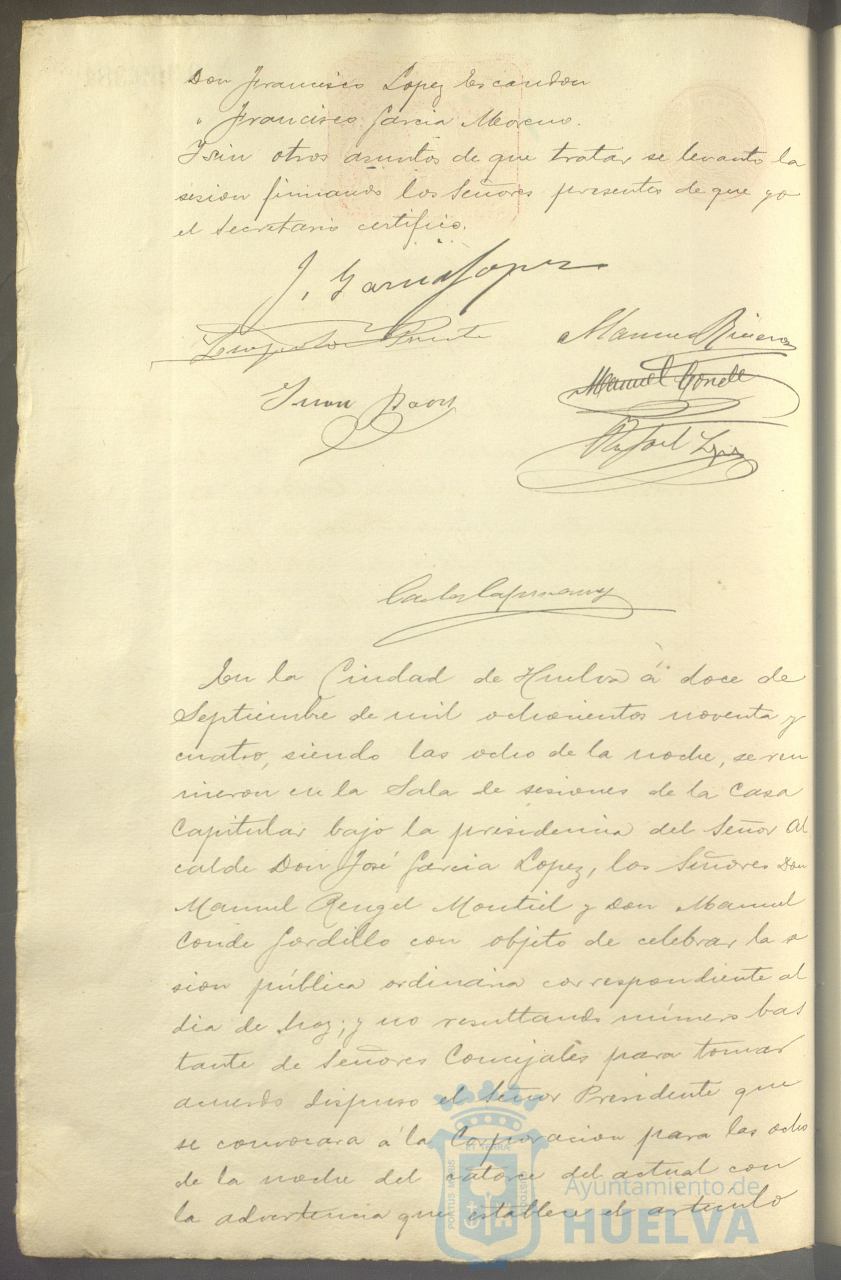 Don Francisco Lopez Escandon
" Francisco Garcia Moreno.
Y sin otros asuntos de que tratar se levantó la
sesion firmando los Señores presentes de que yo
el Secretario certifico.
J. Garcia Lopez
Manuel
Manuel Conde
Juan
Rafael
Carlos
En la Ciudad de Huelva á doce de
Septiembre de mil ochocientos noventa y
cuatro, siendo las ocho de la noche, se reu
nieron en la Sala de sesiones de la Casa
Capitular bajo la presidencia del Señor Al
calde Don José Garcia Lopez, los Señores Don
Manuel Rengel Montiel y Don Manuel
Conde Gordillo con objeto de celebrar la se
sion pública ordinaria correspondiente al
dia de hoy; y no resultando número bas
tante de Señores Concejales para tomar
acuerdo dispuso el Señor Presidente que
se convocara á la Corporacion para las ocho
de la noche del catorce del actual con
la advertencia que establece el articulo
PORTUS MARIS
ET TERRÆ
CUSTODIA
Ayuntamiento de
HUELVA